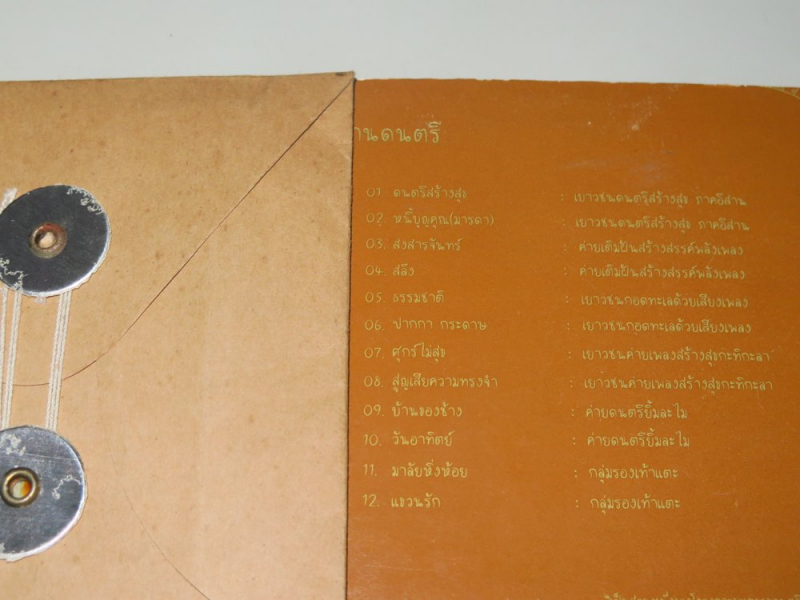 านดนตรี
01. ดนตรีสร้างสุข : เยาวชนดนตรีสร้างสุข ภาคอีสาน
02. หนี้บุญคุณ(มารดา) : เยาวชนดนตรีสร้างสุข ภาคอีสาน
03. สงสารจันทร์ : ค่ายเติมฝันสร้างสรรค์พลังเพลง
04. สลึง : ค่ายเติมฝันสร้างสรรค์พลังเพลง
05. ธรรมชาติ : เยาวชนกอดทะเลด้วยเสียงเพลง
06. ปากกา กระดาษ : เยาวชนกอดทะเลด้วยเสียงเพลง
07. ศุกร์ไม่สุข : เยาวชนค่ายเพลงสร้างสุขกะทิกะลา
08. สูญเสียความทรงจำ : เยาวชนค่ายเพลงสร้างสุขกะทิกะลา
09. บ้านของช้าง : ค่ายดนตรียิ้มละไม
10. วันอาทิตย์ : ค่ายดนตรียิ้มละไม
11. มาลัยหิ่งห้อย : กลุ่มรองเท้าแตะ
12. แขวนรัก : กลุ่มรองเท้าแตะ